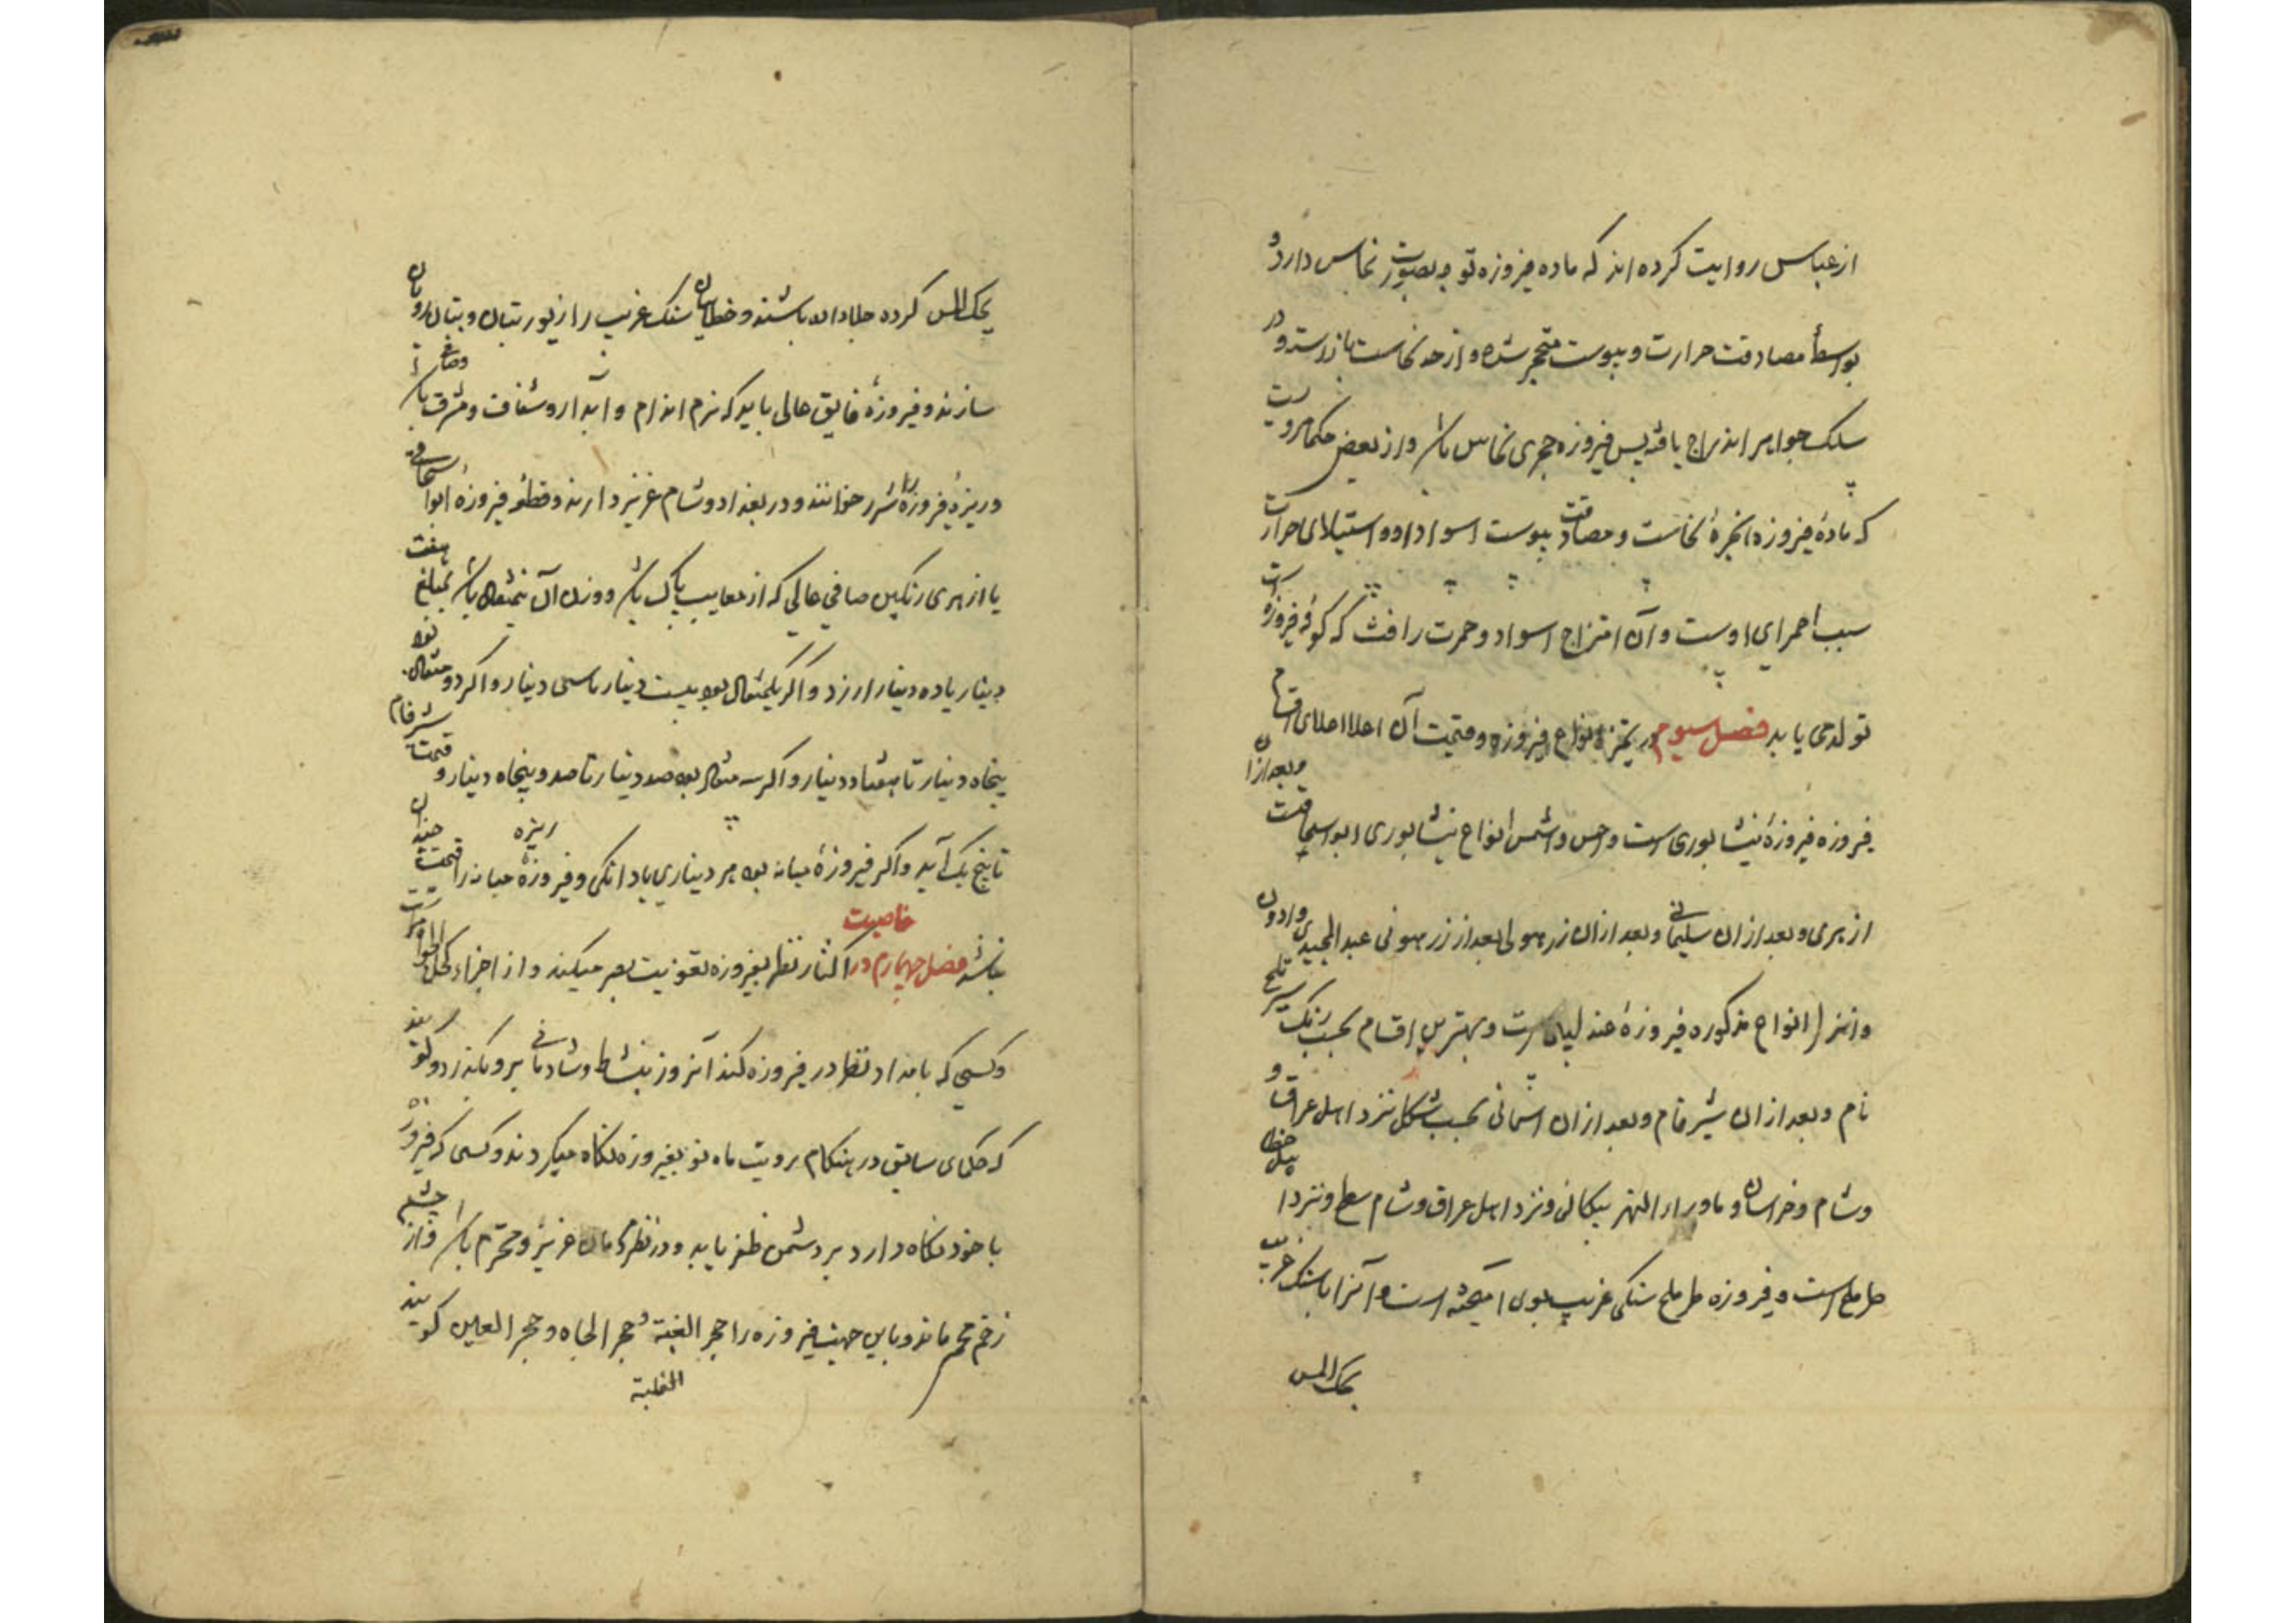 از عباس روایت کرده اند که ماده فیروزه توجه بصورت نحاس دارد و
بواسطهٔ مصادفت حرارت و یبوست متحجر شده و از حد نحاست باز ایستد و در
سلک جواهر اندراج یافته پس فیروزه حجری نحاس باشد و از بعض حکما مرویست
که مادهٔ فیروزه ابخرهٔ نحاست و مصادفت یبوست اسواد او و استیلای حرارت
سبب احمرای اوست و آن امتزاج اسواد و حمرت را که گونه فیروزه است
تولد می یابد فصل سیوم در تمیز انواع فیروزه و قیمت آن اعلا اعلای اقسام
فیروزه فیروزهٔ نیشابوری است و احسن و اشمس انواع نیشابوری ابو اسحاقیست و بعد از آن
ازهری و بعد از آن سلیمانی و بعد از آن زرهونی بعد از زرهونی عبد المجیدی و ادون
و انزل انواع مذکوره فیروزهٔ عندلیبی است و بهترین اقسام بحسب رنگ
فام و بعد از آن شیرفام و بعد از آن آسمانی بحسب شکل نزد اهل عراق و
و شام و خراسان و ماوراء النهر پیکانی و نزد اهل عراق و شام سطح و نزد اهل خطا
طرملح است و فیروزه طرملح سنکی غریب بوی آمیخته است و آنرا با سنک غریب
بحک المس
بحک المس کرده جلا داده باشند و خطاییان سنک غریب را زیور بتان و بتان رو
سازند و فیروزهٔ فایق عالی باید که نرم اندام و آبدار و شفاف و مشرق و صافی باشد
و ریزهٔ فیروزه را شرر خوانند و در بغداد و شام عزیز دارند و قطعه فیروزهٔ ابو اسحاقی
یا ازهری رنکین صافی عالی که از معایب پاک باشد و وزن آن نیم مثقال باشد بمبلغ هفت
دینار یا ده دینار ارزد و اکر یکمثقال بود بیست دینار تا سی دینار و اکر دو مثقال بود
پنجاه دینار تا هفتاد دینار و اکر سه مثقال بود صد دینار تا صد و پنجاه دینار و قیمت شیرفام
تا پنج یک آید و اکر فیروزهٔ میانه بود هر دیناری یا دانکی و فیروزهٔ ریزه میانه را قیمت چندان
نباشد فصل چهارم در خاصیت اکثار نظر بفیروزه تقویت بصر میکند و از اجزاء کحل الجواهر است
و کسی که بامداد نظر در فیروزه کند آنروز بنشاط و شادمانی برو بکذرد و کویند
که حکمای سابق در هنکام رویت ماه نو بفیروزه نکاه میکردند و کسی که فیروزه
با خود نکاه دارد بر دشمن ظفر یابد و در نظر مردمان عزیز و محترم باشد و از چشم
زخم محروس ماند و باین جهت فیروزه را حجر الغلبة و حجر الجاه و حجر العین کویند
الغلبة